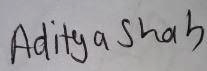 Aditya Shah